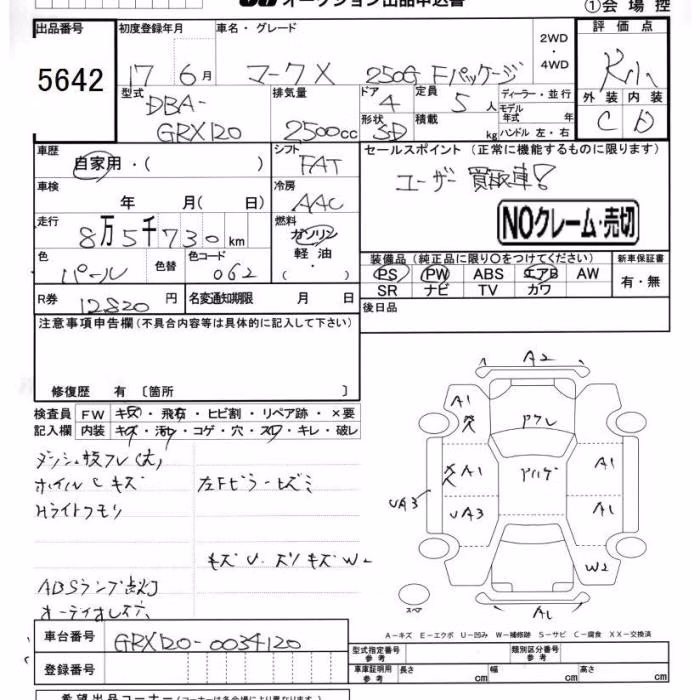 オークション出品申込書
①会場控
出品番号
5642
初度登録年月
17 6月
車名・グレード
マークX 250G Fパッケージ
2WD
・
4WD
評価点
外装 内装
C D
型式
DBA-
GRX120
排気量
2500cc
ドア
4
形状
SD
定員
5人
積載
kg
ディーラー・並行
モデル
年式 年
ハンドル 左・右
車歴
自家用・( )
シフト
FAT
セールスポイント (正常に機能するものに限ります)
ユーザー買取車!
NOクレーム・売切
車検
年 月( 日)
冷房
AAC
走行
8万5千730km
燃料
ガソリン
軽油
( ・ )
色
パール
色替
色コード
062
装備品 (純正品に限り○をつけてください)
PS PW ABS エアB AW
SR ナビ TV カワ
新車保証書
有・無
R券 12820円
名変通知期限 月 日
後日品
注意事項申告欄 (不具合内容等は具体的に記入して下さい)
修復歴 有 〔箇所 〕
検査員 FW キズ・飛石・ヒビ割・リペア跡・×要
記入欄 内装 キズ・汚れ・コゲ・穴・スレ・キレ・破レ
ホイルCキズ
左Fピラーヒズミ
Hライトクモリ
ABSランプ点灯
オーディオレス
A2
A1
アクレ
A1
A1
UA3
UA3
A1
W2
A1
スペア
A－キズ E－エクボ U－凹み W－補修跡 S－サビ C－腐食 XX－交換済
車台番号
GRX120-0034120
登録番号
型式指定番号
参考
類別区分番号
参考
車庫証明用
参考
長さ cm
幅 cm
高さ cm
希望出品コーナー